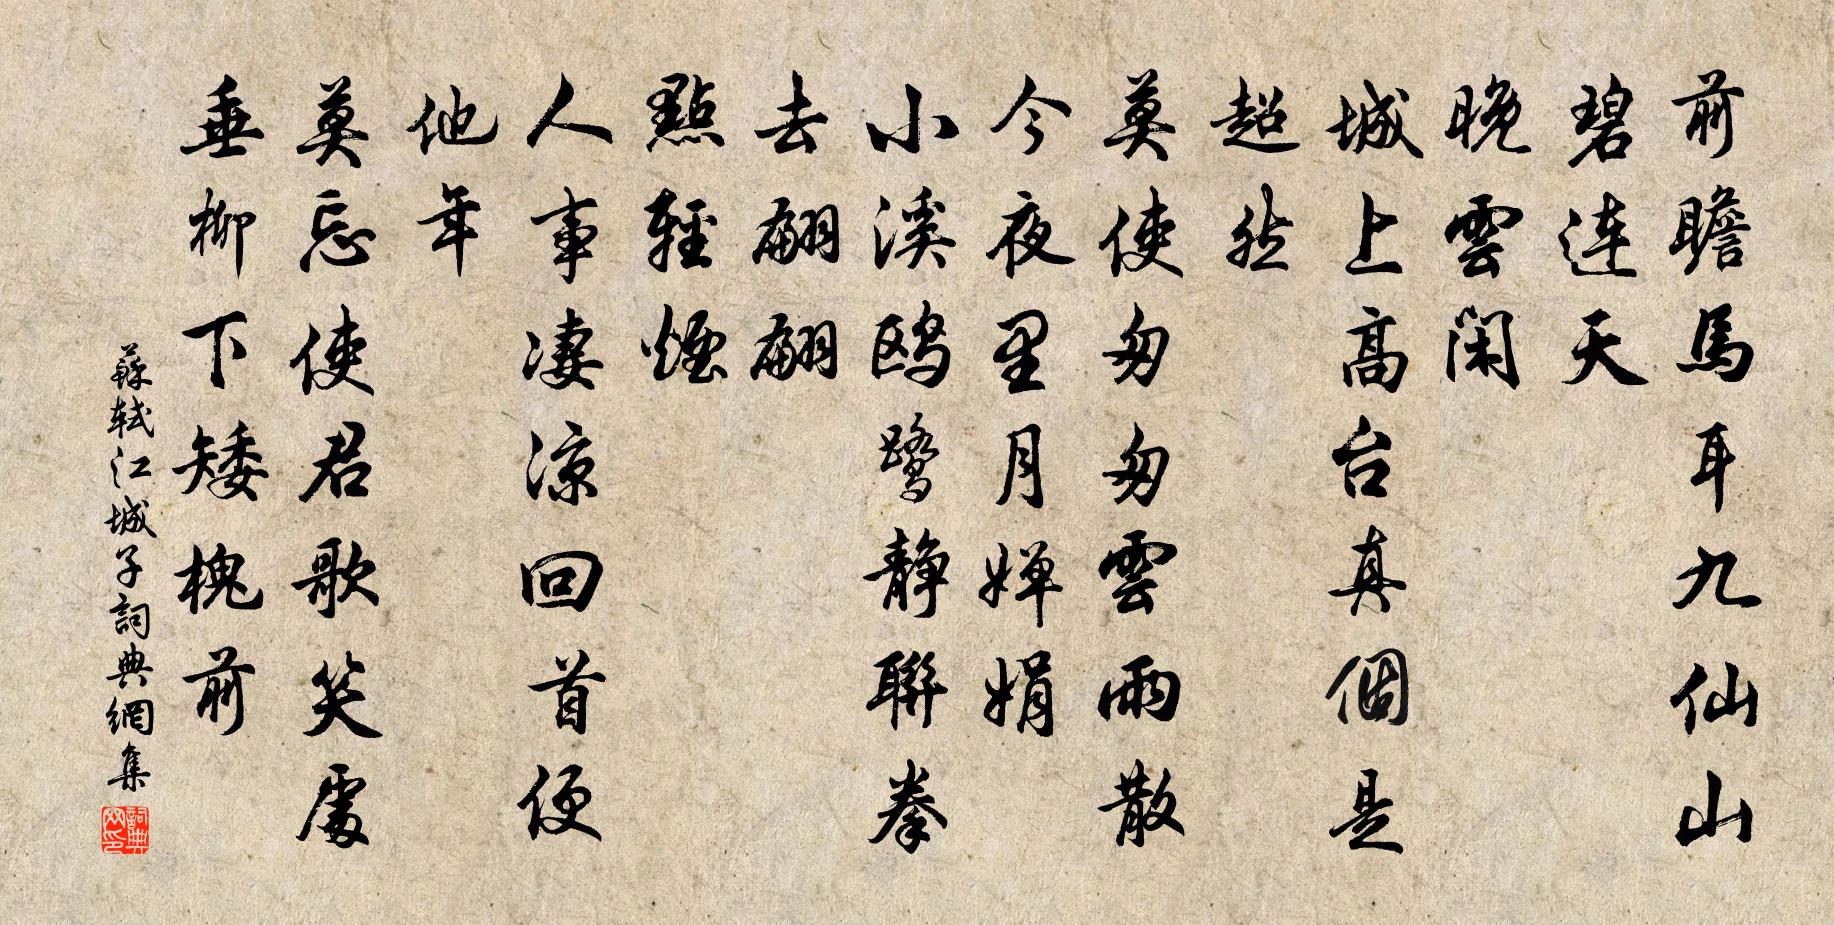 前瞻馬耳九仙山
碧連天
晚雲閑
城上高台真個是
超然
莫使匆匆雲雨散
今夜里月嬋娟
小溪鷗鷺靜聯拳
去翩翩
點輕煙
人事凄涼回首便
他年
莫忘使君歌笑處
垂柳下矮槐前
蘇軾江城子詞典網集
詞典網印